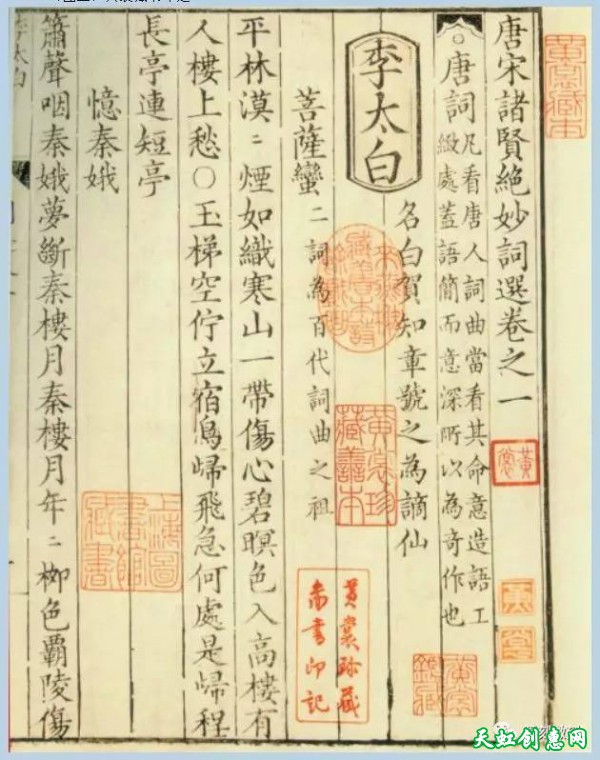 黄裳藏本
唐宋諸賢絶妙詞選卷之一
黄裳
〇唐詞
凡看唐人詞曲當看其命意造語工
緻處蓋語簡而意深所以為奇作也
李太白
名白賀知章號之為謫仙
黄裳珍藏善本
菩薩蠻
二詞為百代詞曲之祖
平林漠〻煙如織寒山一帶傷心碧暝色入高樓有
人樓上愁〇玉梯空佇立宿鳥歸飛急何處是歸程
長亭連短亭
上海圖書館藏書
憶秦娥
簫聲咽秦娥夢斷秦樓月秦樓月年〻柳色覇陵傷
李太白
天虹创意网